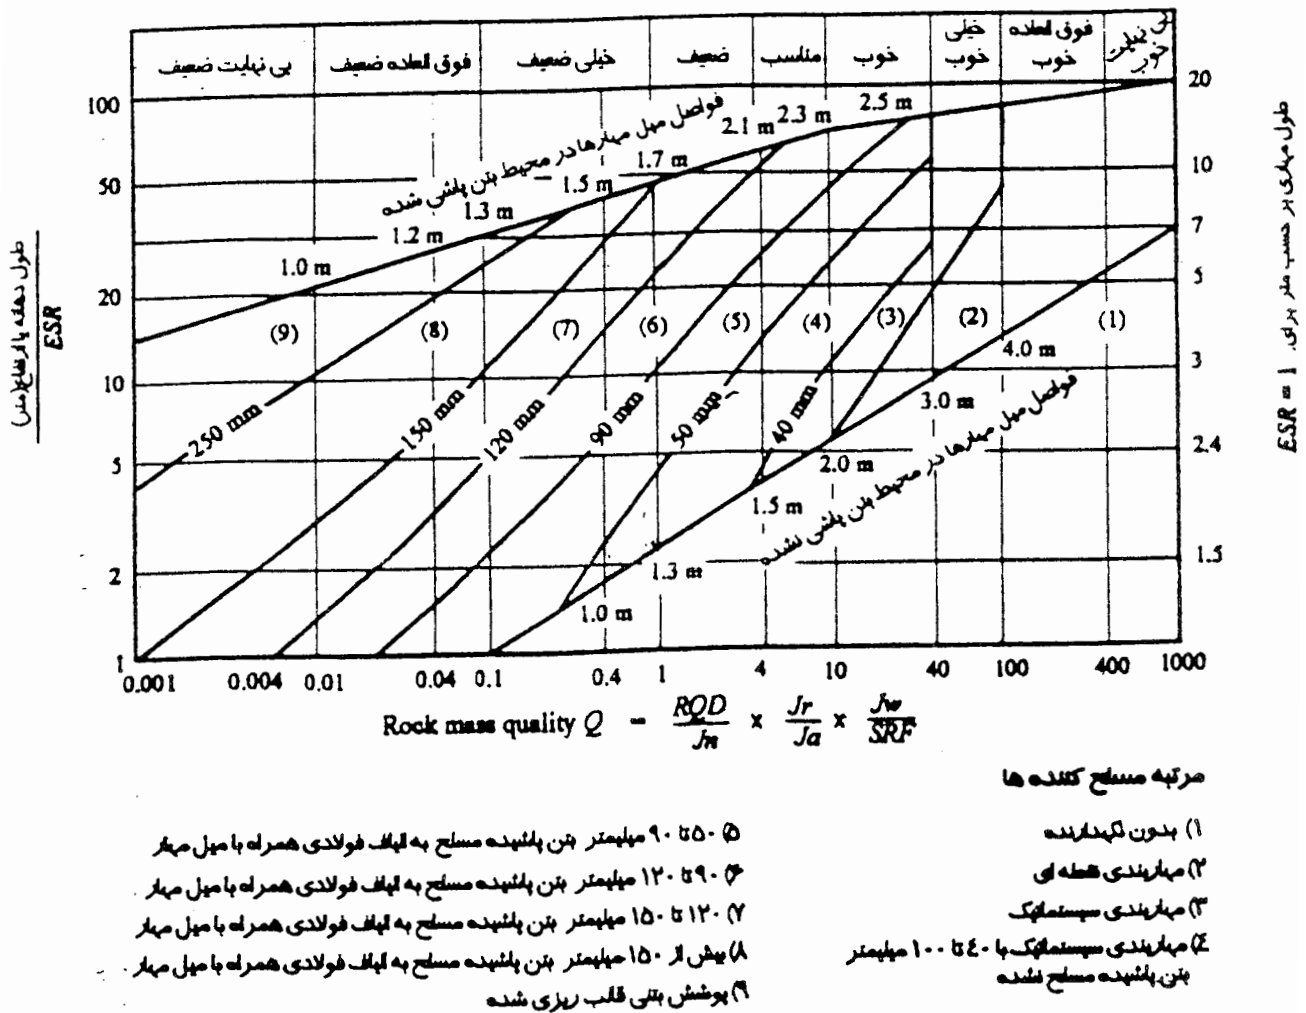 بی نهایت ضعیف
فوق العاده ضعیف
خیلی ضعیف
ضعیف
مناسب
خوب
خیلی
خوب
فوق العاده
خوب
بی نهایت
خوب
100
50
20
10
5
2
1
طول دهانه یا ارتفاع (متر)
ESR
20
10
7
5
3
2.4
1.5
طول مهاری بر حسب متر برای ESR = 1
فواصل میل مهارها در محیط بتن پاشی شده
1.0 m
1.2 m
1.3 m
1.5 m
1.7 m
2.1 m
2.3 m
2.5 m
(9)
(8)
(7)
(6)
(5)
(4)
(3)
(2)
(1)
250 mm
150 mm
120 mm
90 mm
50 mm
40 mm
4.0 m
3.0 m
2.0 m
1.5 m
1.3 m
1.0 m
فواصل میل مهارها در محیط بتن پاشی نشده
0.001
0.004
0.01
0.04
0.1
0.4
1
4
10
40
100
400
1000
Rock mass quality Q = RQD/Jn x Jr/Ja x Jw/SRF
مرتبه مسلح کننده ها
۱) بدون نگهدارنده
۲) مهاربندی نقطه ای
۳) مهاربندی سیستماتیک
٤) مهاربندی سیستماتیک با ٤٠ تا ۱۰۰ میلیمتر
بتن پاشیده مسلح نشده
۵) ۵۰ تا ۹۰ میلیمتر بتن پاشیده مسلح به الیاف فولادی همراه با میل مهار
۶) ۹۰ تا ۱۲۰ میلیمتر بتن پاشیده مسلح به الیاف فولادی همراه با میل مهار
۷) ۱۲۰ تا ۱۵۰ میلیمتر بتن پاشیده مسلح به الیاف فولادی همراه با میل مهار
۸) بیش از ۱۵۰ میلیمتر بتن پاشیده مسلح به الیاف فولادی همراه با میل مهار
۹) پوشش بتنی قالب ریزی شده